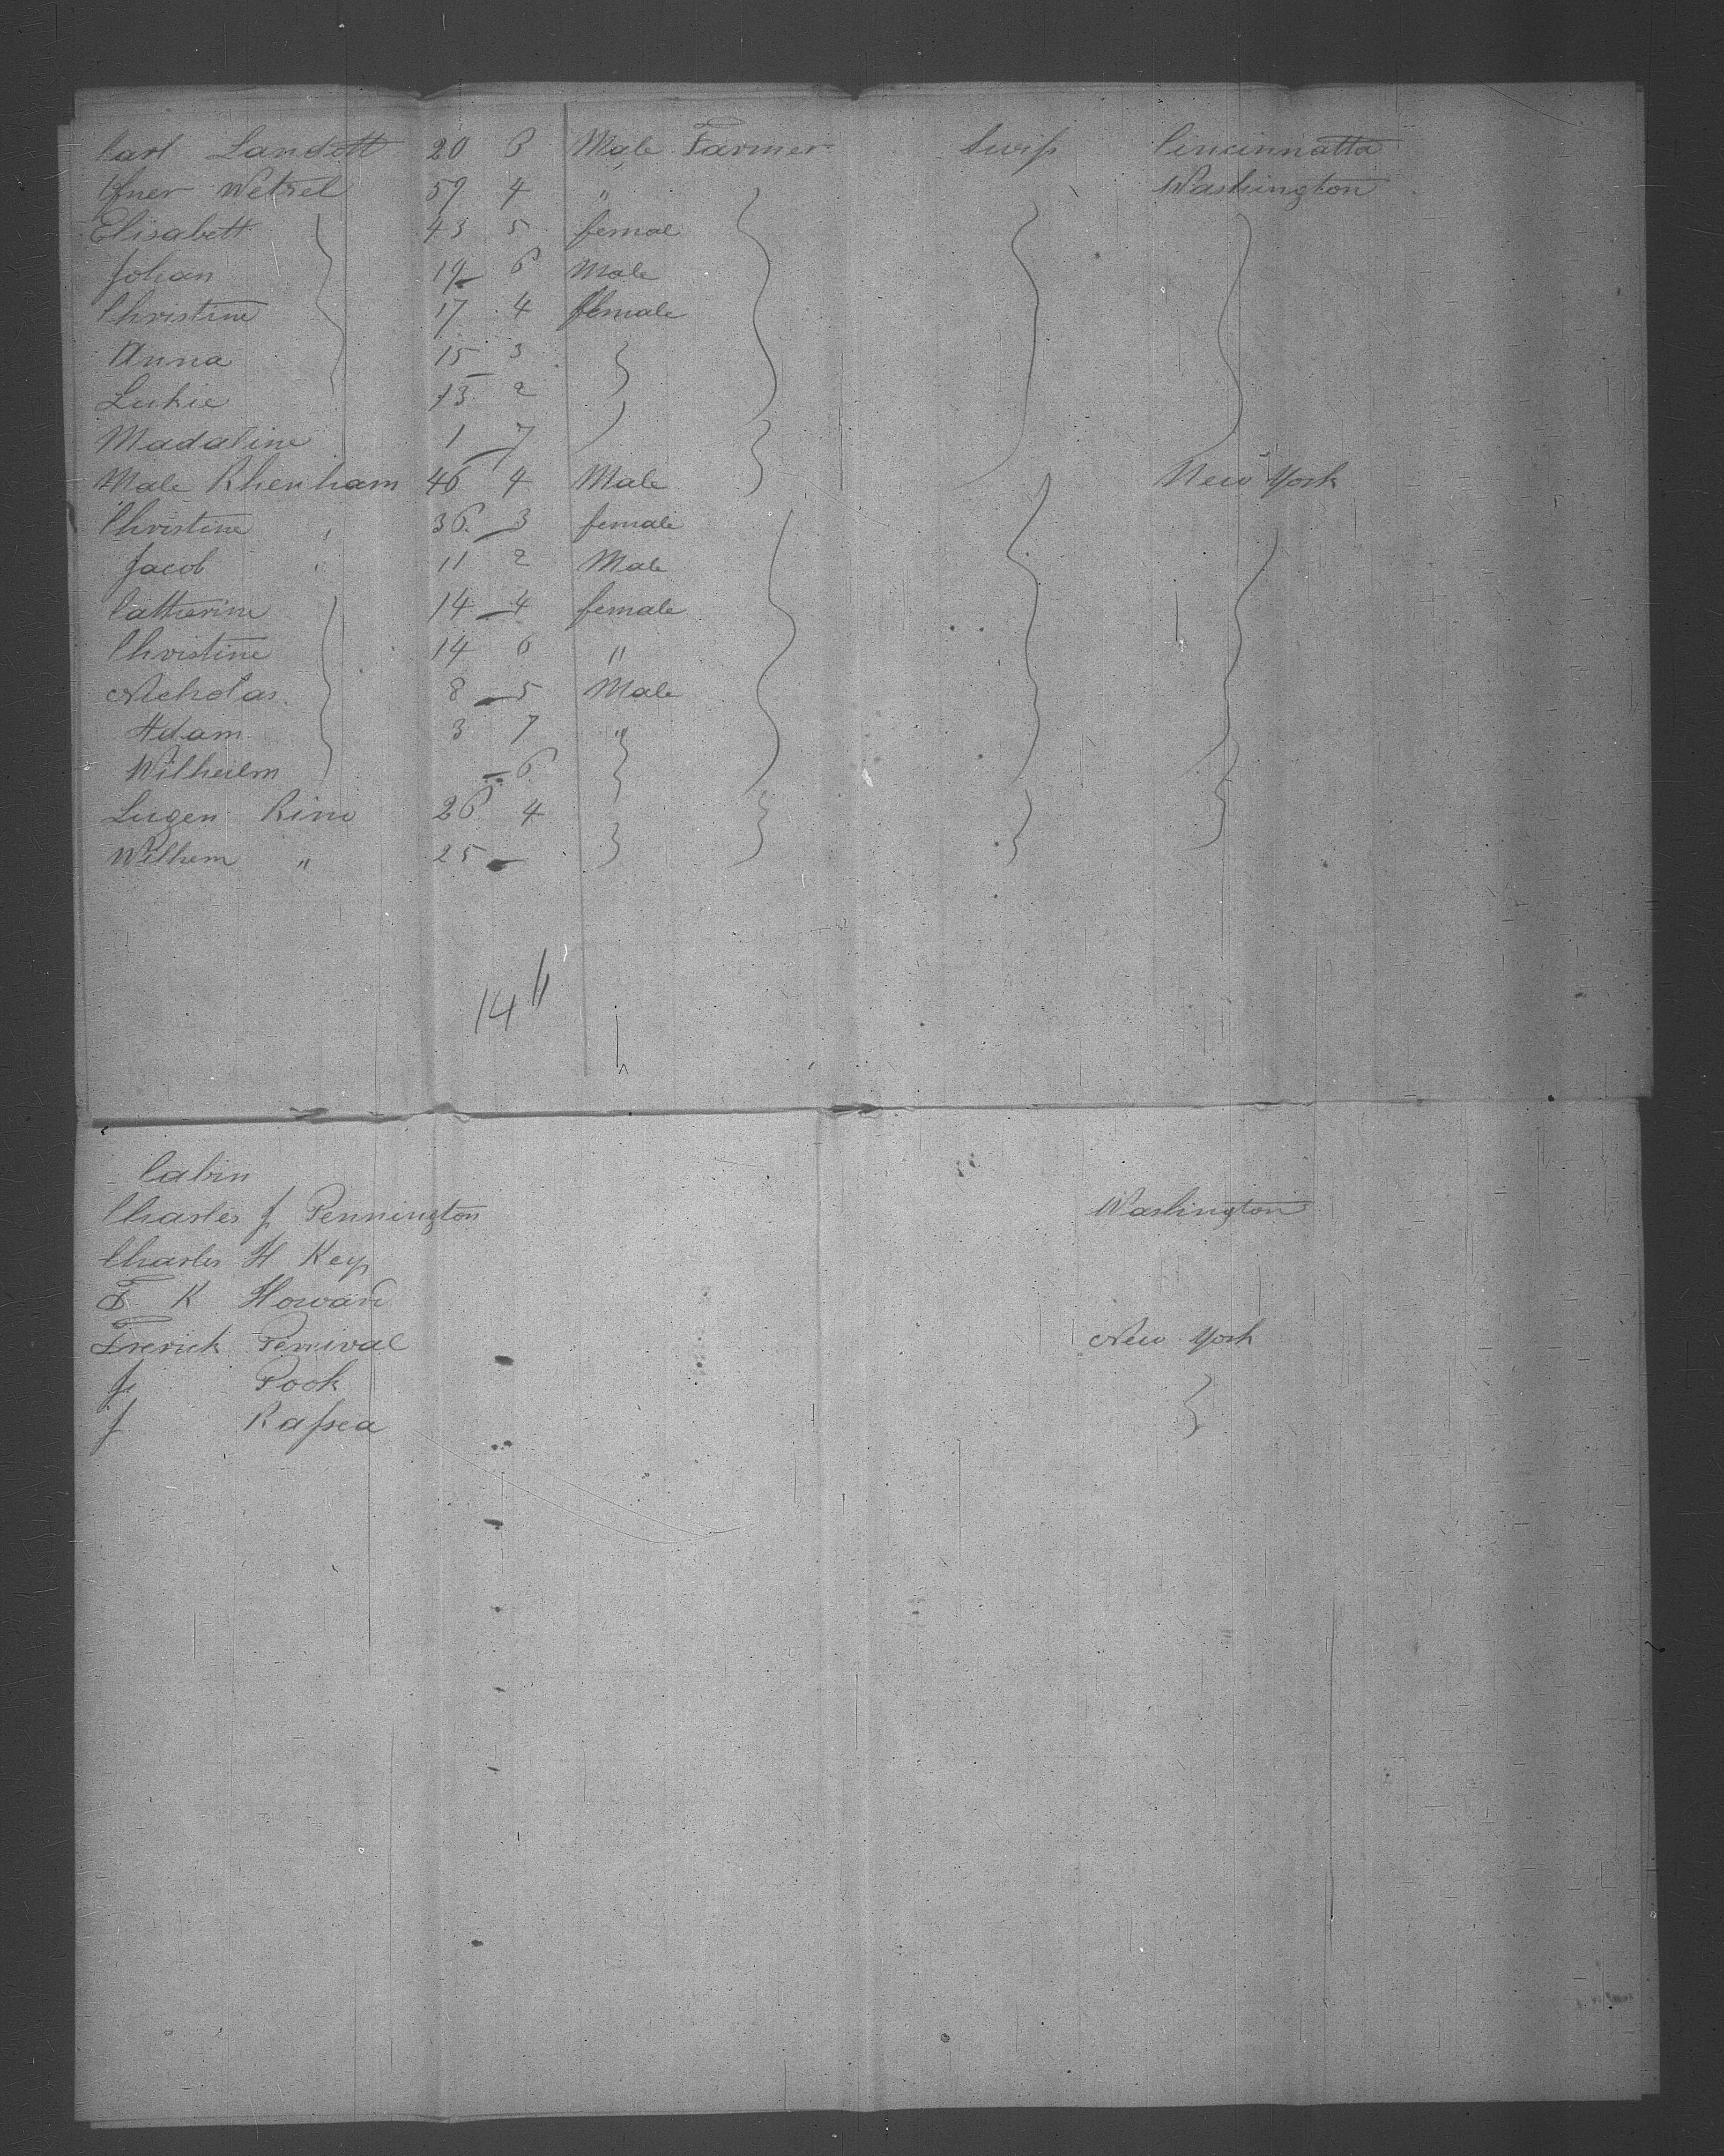 Carl Landott 20 6 Male Farmer Swiss Cincinnatta
Wetzel 59 4 " Washington
Elisabett 43 5 femal
Johan 19 6 Male
Christine 17 4 female
Anna 15 3
Lukie 13 2
Madaline 1 7
Male Rhenham 46 4 Male New York
Christine " 36 3 female
Jacob " 11 2 Male
Catherine 14 4 female
Christine 14 6 "
Nicholas 8 5 Male
Adam 3 7 "
Wilheilm 6
Lugen Rino 26 4
Wilhem " 25
14 "
Cabin
Charles J Pennington Washington
Charles H Key
F K Howard
Frerick Pernival New York
J Pook
J Rassea